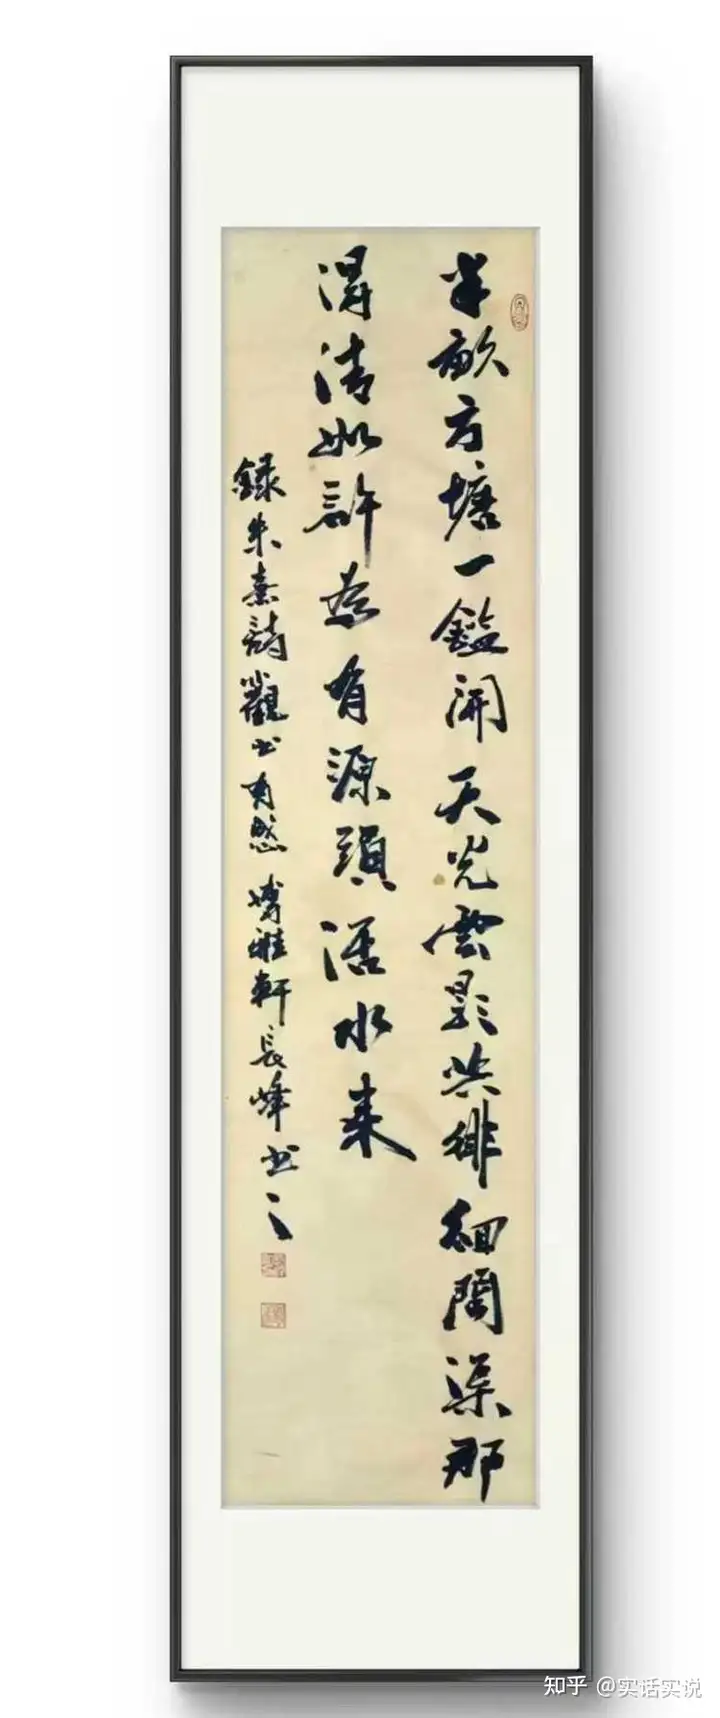 半畝方塘一鑑開天光雲影共徘徊問渠那
得清如許為有源頭活水来
録朱熹詩觀書有感博雅軒長峰書之
知乎 @实话实说